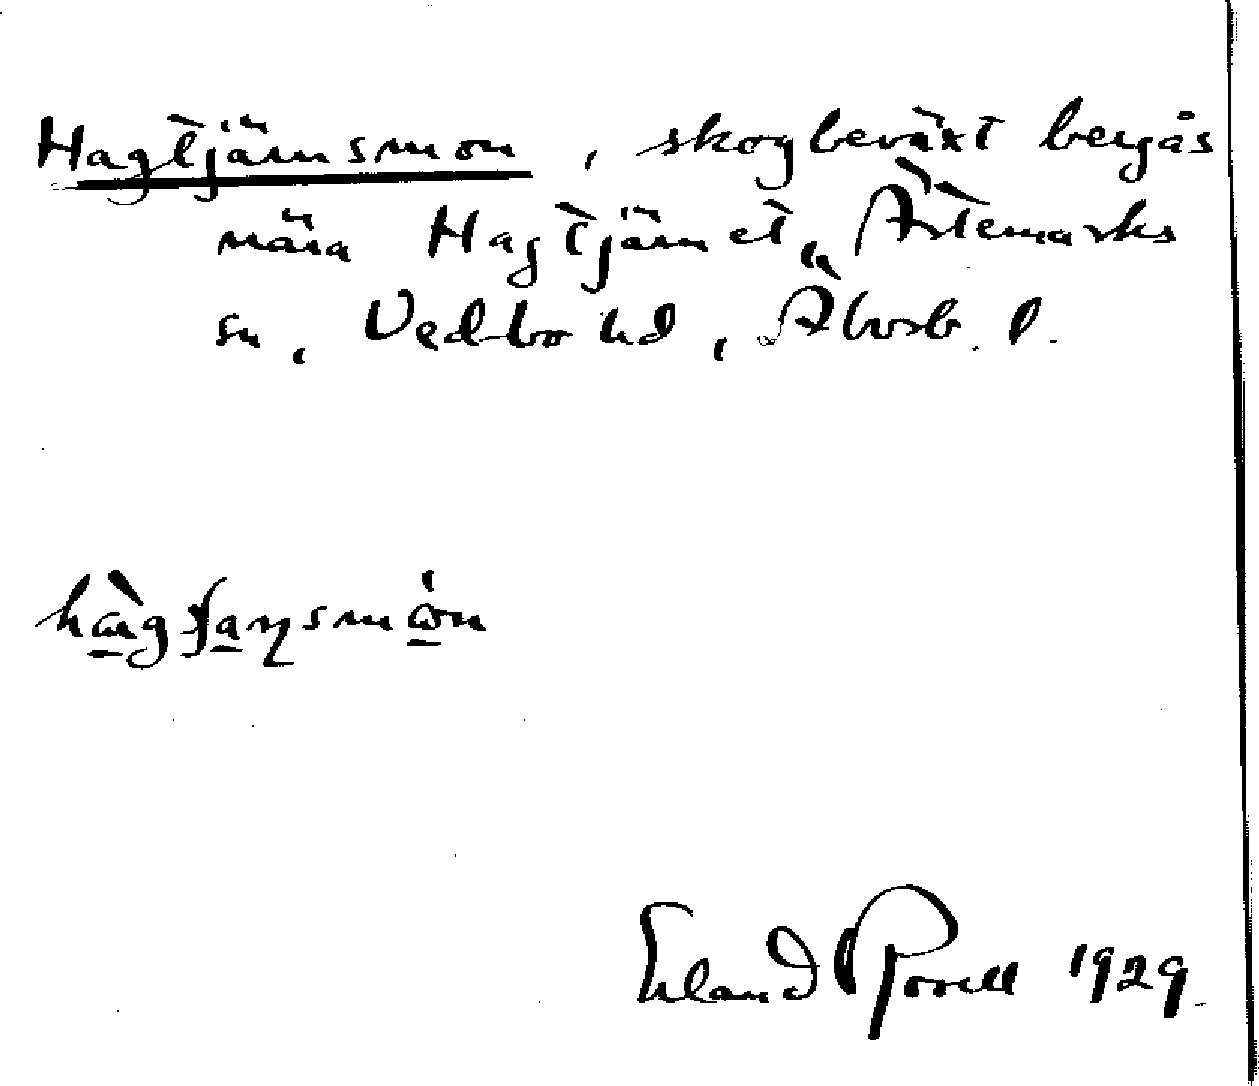 Hagtjärnsmon, skogbeväxt bergås
nära Hagtjärnet, Ärtemarks
sn, Vedbo hd, Älvsb. l.
Erland Rosell 1929